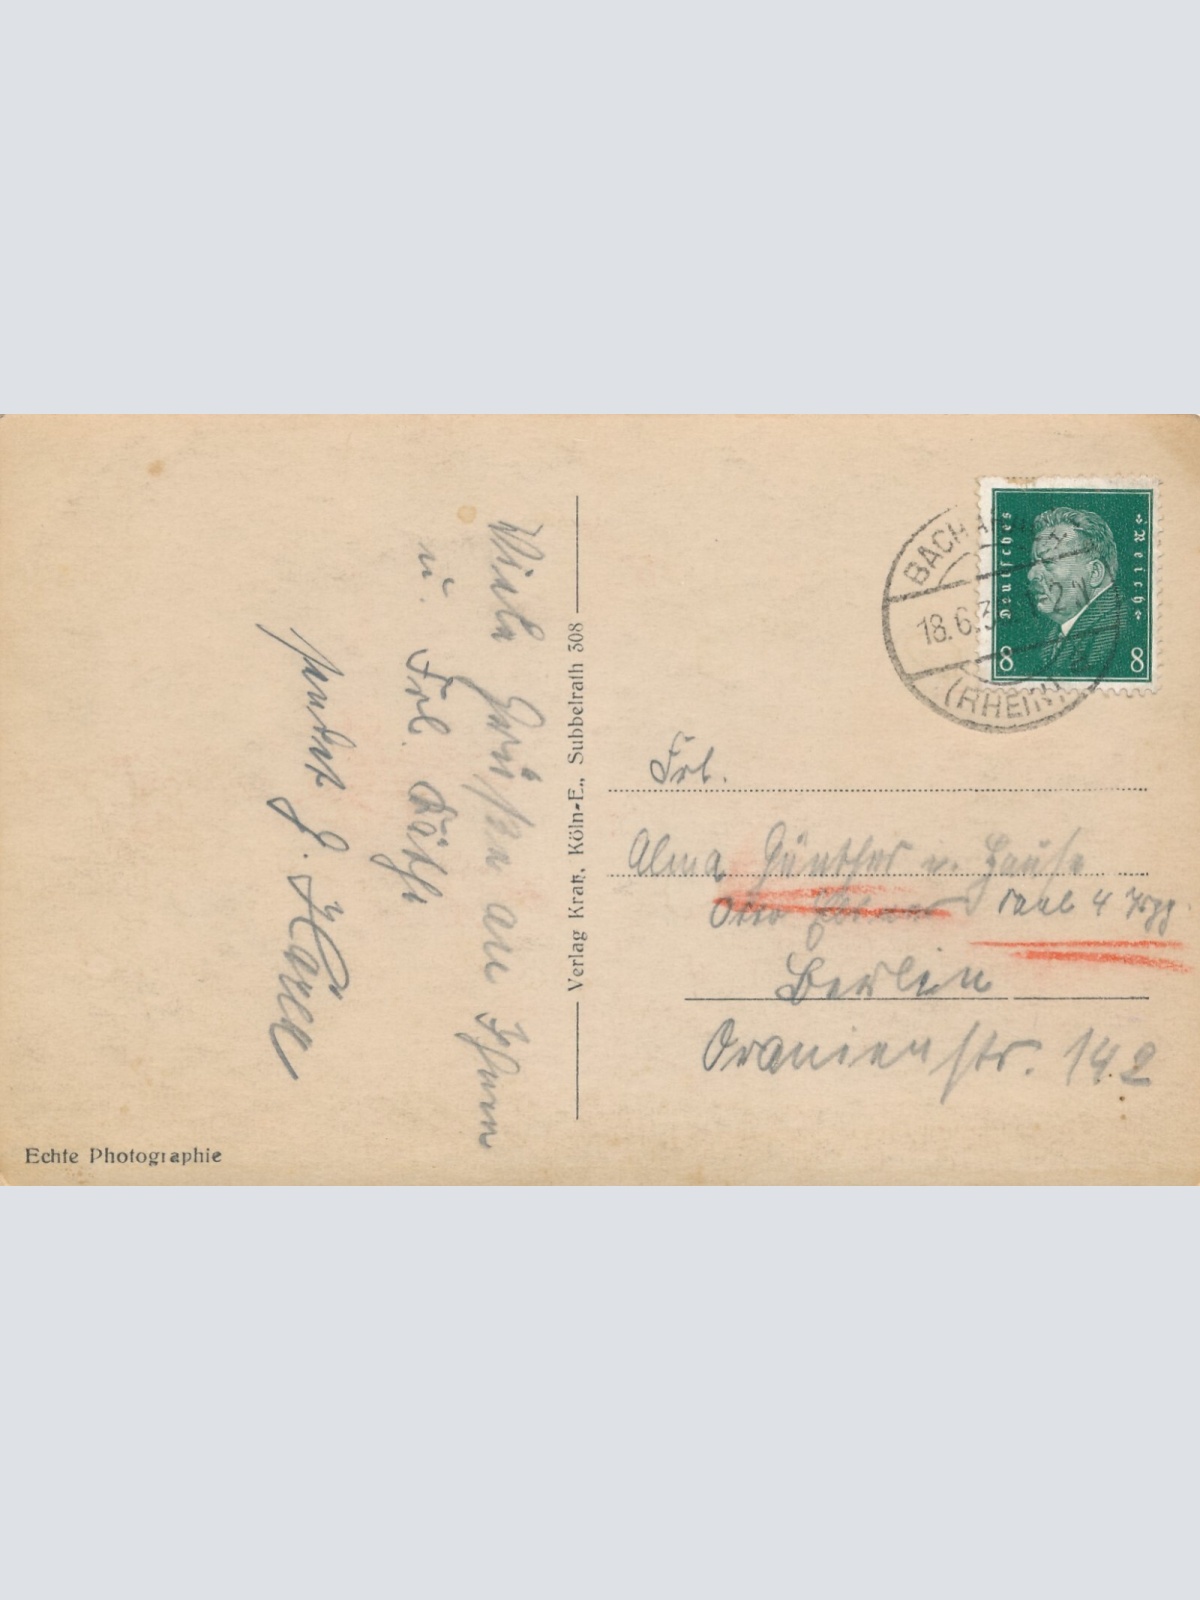 Viele Grüßen an Ihnen
u. Frl. Käthe
sendet
Verlag Kratz, Köln-E., Subbelrath 308
Echte Photographie
Deutsches Reich
8 8
BACHA
18.6.3
(RHEIN)
Frl.
Alma Günther
Otto 4 Trpp
Berlin
Oranienstr. 142